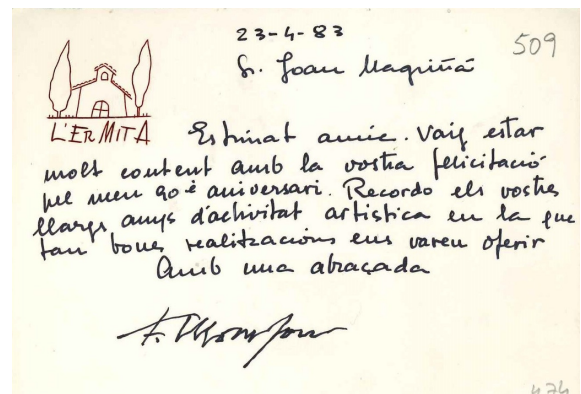 23-4-83
509
Sr. Joan Magriñá
L'ERMITA
Estimat amic. Vaig estar
molt content amb la vostra felicitació
pel meu 90è aniversari. Recordo els vostres
llargs anys d'activitat artística en la que
tan bones realitzacions ens vareu oferir
Amb una abraçada
474